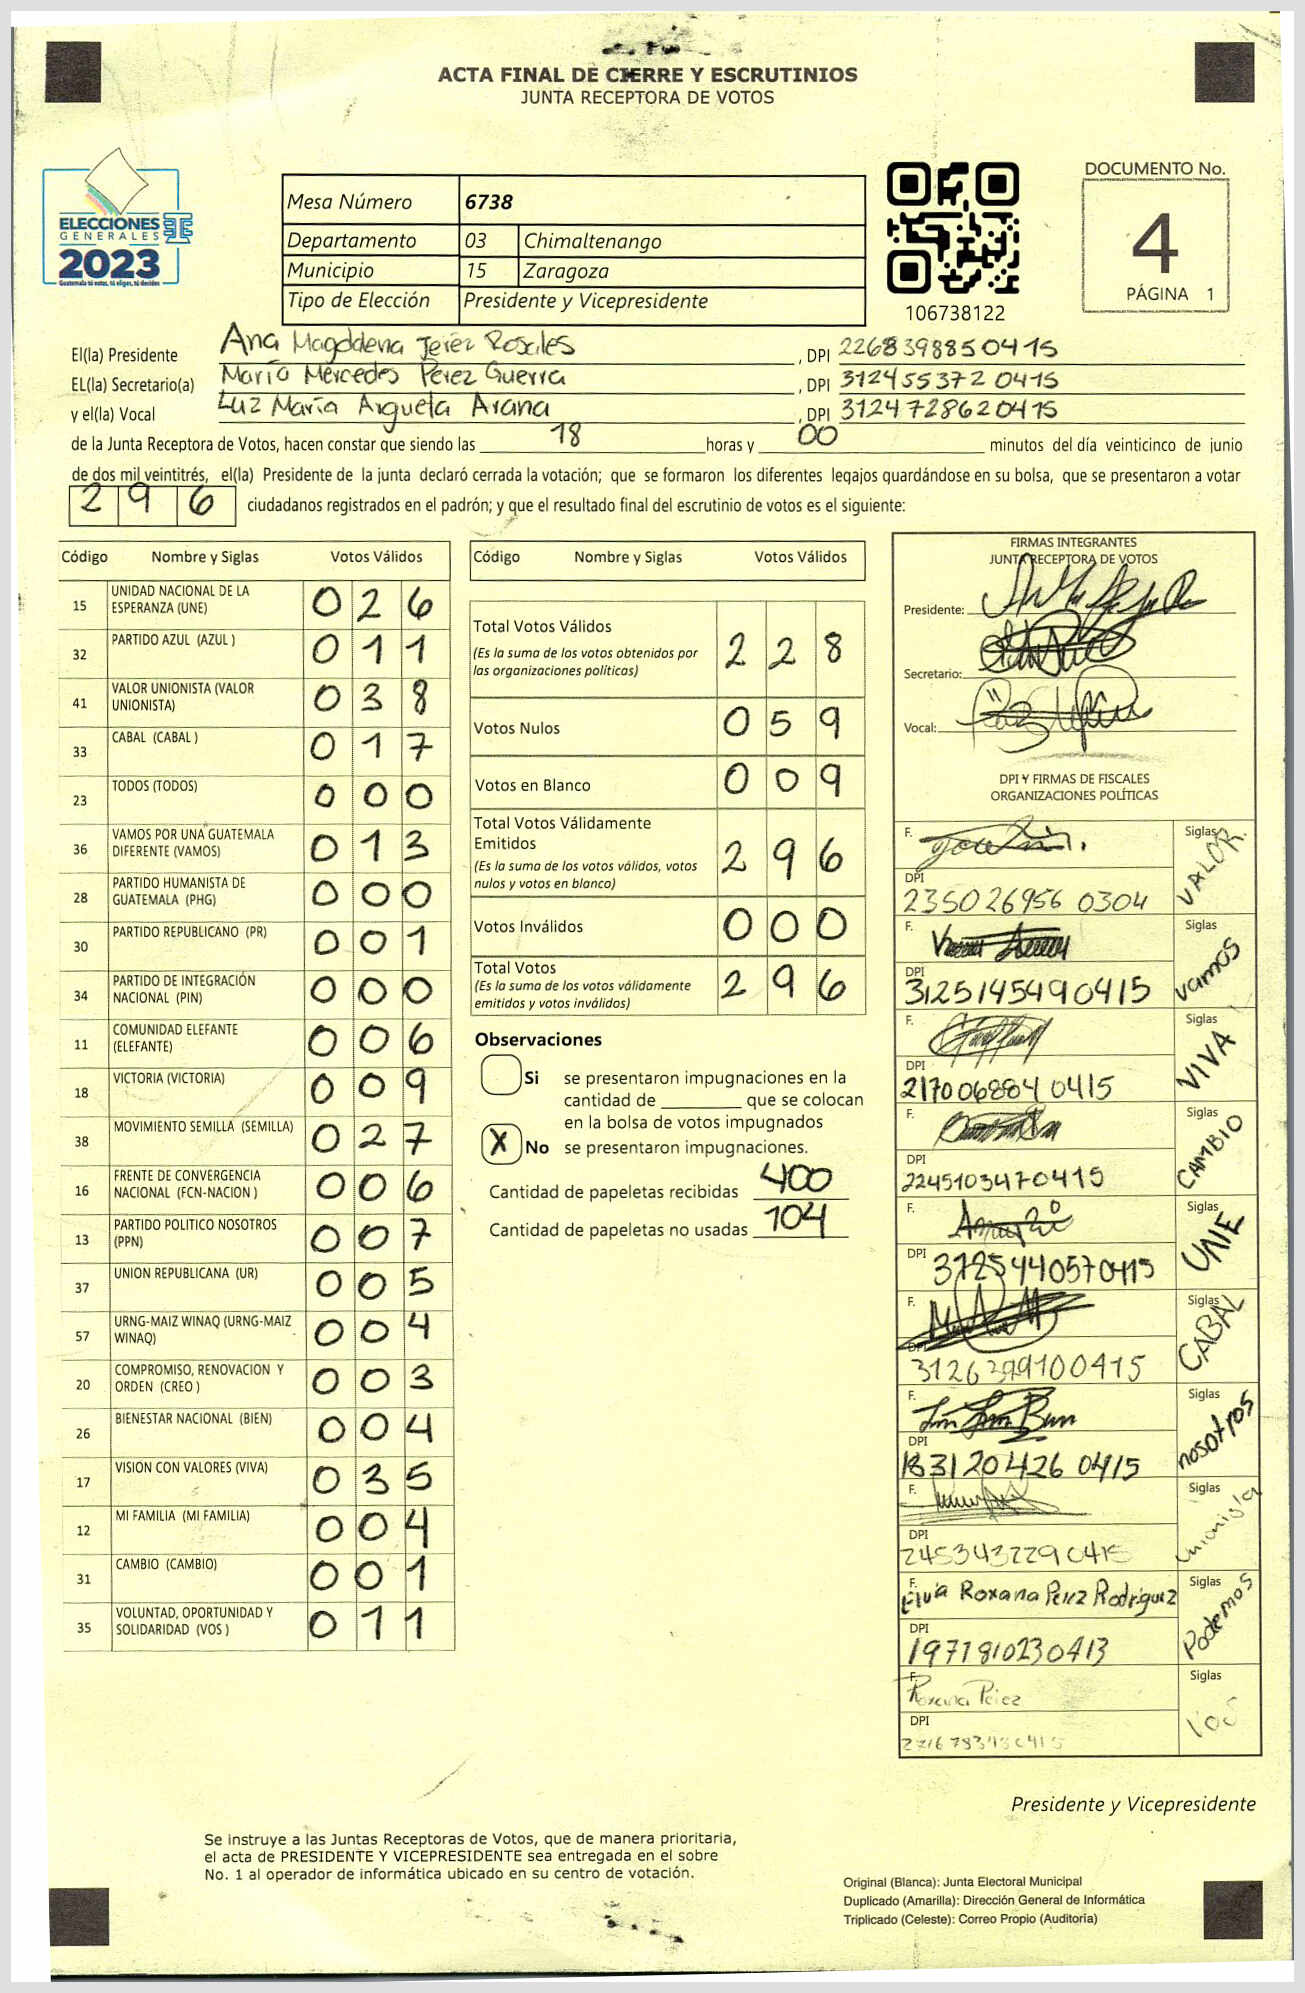 ACTA FINAL DE CIERRE Y ESCRUTINIOS
JUNTA RECEPTORA DE VOTOS
ELECCIONES
GENERALES
2023
Guatemala tú votas, tú eliges, tú decides
Mesa Número 6738
Departamento 03 Chimaltenango
Municipio 15 Zaragoza
Tipo de Elección Presidente y Vicepresidente
106738122
DOCUMENTO No.
4
PÁGINA 1
El(la) Presidente Ana Magddena Jeréz Rosales, DPI 2268398850415
EL(la) Secretario(a) María Mercedes Pérez Guerra, DPI 3124553720415
y el(la) Vocal Luz María Argueta Arana, DPI 3124728620415
de la Junta Receptora de Votos, hacen constar que siendo las 18 horas y 00 minutos del día veinticinco de junio
de dos mil veintitrés, el(la) Presidente de la junta declaró cerrada la votación; que se formaron los diferentes legajos guardándose en su bolsa, que se presentaron a votar
296 ciudadanos registrados en el padrón; y que el resultado final del escrutinio de votos es el siguiente:
Código Nombre y Siglas Votos Válidos
15 UNIDAD NACIONAL DE LA ESPERANZA (UNE) 026
32 PARTIDO AZUL (AZUL ) 011
41 VALOR UNIONISTA (VALOR UNIONISTA) 038
33 CABAL (CABAL ) 017
23 TODOS (TODOS) 000
36 VAMOS POR UNA GUATEMALA DIFERENTE (VAMOS) 013
28 PARTIDO HUMANISTA DE GUATEMALA (PHG) 000
30 PARTIDO REPUBLICANO (PR) 001
34 PARTIDO DE INTEGRACIÓN NACIONAL (PIN) 000
11 COMUNIDAD ELEFANTE (ELEFANTE) 006
18 VICTORIA (VICTORIA) 009
38 MOVIMIENTO SEMILLA (SEMILLA) 027
16 FRENTE DE CONVERGENCIA NACIONAL (FCN-NACION ) 006
13 PARTIDO POLITICO NOSOTROS (PPN) 007
37 UNION REPUBLICANA (UR) 005
57 URNG-MAIZ WINAQ (URNG-MAIZ WINAQ) 004
20 COMPROMISO, RENOVACION Y ORDEN (CREO ) 003
26 BIENESTAR NACIONAL (BIEN) 004
17 VISION CON VALORES (VIVA) 035
12 MI FAMILIA (MI FAMILIA) 004
31 CAMBIO (CAMBIO) 001
35 VOLUNTAD, OPORTUNIDAD Y SOLIDARIDAD (VOS ) 011
Código Nombre y Siglas Votos Válidos
Total Votos Válidos 228
(Es la suma de los votos obtenidos por las organizaciones políticas)
Votos Nulos 059
Votos en Blanco 009
Total Votos Válidamente Emitidos 296
(Es la suma de los votos válidos, votos nulos y votos en blanco)
Votos Inválidos 000
Total Votos 296
(Es la suma de los votos válidamente emitidos y votos inválidos)
Observaciones
Si se presentaron impugnaciones en la
cantidad de ________ que se colocan
en la bolsa de votos impugnados
X No se presentaron impugnaciones.
Cantidad de papeletas recibidas 400
Cantidad de papeletas no usadas 104
FIRMAS INTEGRANTES
JUNTA RECEPTORA DE VOTOS
Presidente:
Secretario:
Vocal:
DPI Y FIRMAS DE FISCALES
ORGANIZACIONES POLÍTICAS
F. Siglas VALOR.
DPI 235026956 0304
F. Siglas vamos
DPI 3125145490415
F. Siglas VIVA
DPI 217006884 0415
F. Siglas CAMBIO
DPI 2245103470415
F. Siglas UNE
DPI 3125440570415
F. Siglas CABAL
DPI 3126399100415
F. Siglas nosotros
DPI 183120426 0415
F. Siglas Unionista
DPI 2453432290415
F. Elvia Roxana Pérez Rodríguez Siglas Podemos
DPI 1971810230413
F. Roxana Pérez Siglas VOS
DPI
Presidente y Vicepresidente
Se instruye a las Juntas Receptoras de Votos, que de manera prioritaria,
el acta de PRESIDENTE Y VICEPRESIDENTE sea entregada en el sobre
No. 1 al operador de informática ubicado en su centro de votación.
Original (Blanca): Junta Electoral Municipal
Duplicado (Amarilla): Dirección General de Informática
Triplicado (Celeste): Correo Propio (Auditoría)